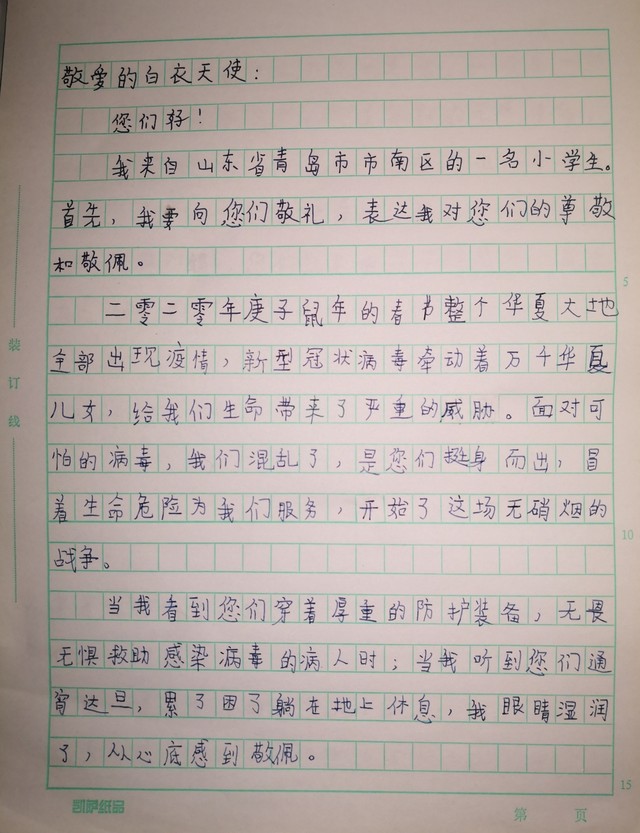 敬爱的白衣天使：
您们好！
我来自山东省青岛市市南区的一名小学生。
首先，我要向您们敬礼，表达我对您们的尊敬
和敬佩。
5
二零二零年庚子鼠年的春节整个华夏大地
全部出现疫情，新型冠状病毒牵动着万千华夏
儿女，给我们生命带来了严重的威胁。面对可
怕的病毒，我们混乱了，是您们挺身而出，冒
着生命危险为我们服务，开始了这场无硝烟的
10
战争。
当我看到您们穿着厚重的防护装备，无畏
无惧救助感染病毒的病人时；当我听到您们通
宵达旦，累了困了躺在地上休息，我眼睛湿润
了，从心底感到敬佩。
15
装订线
凯萨纸品
第 页